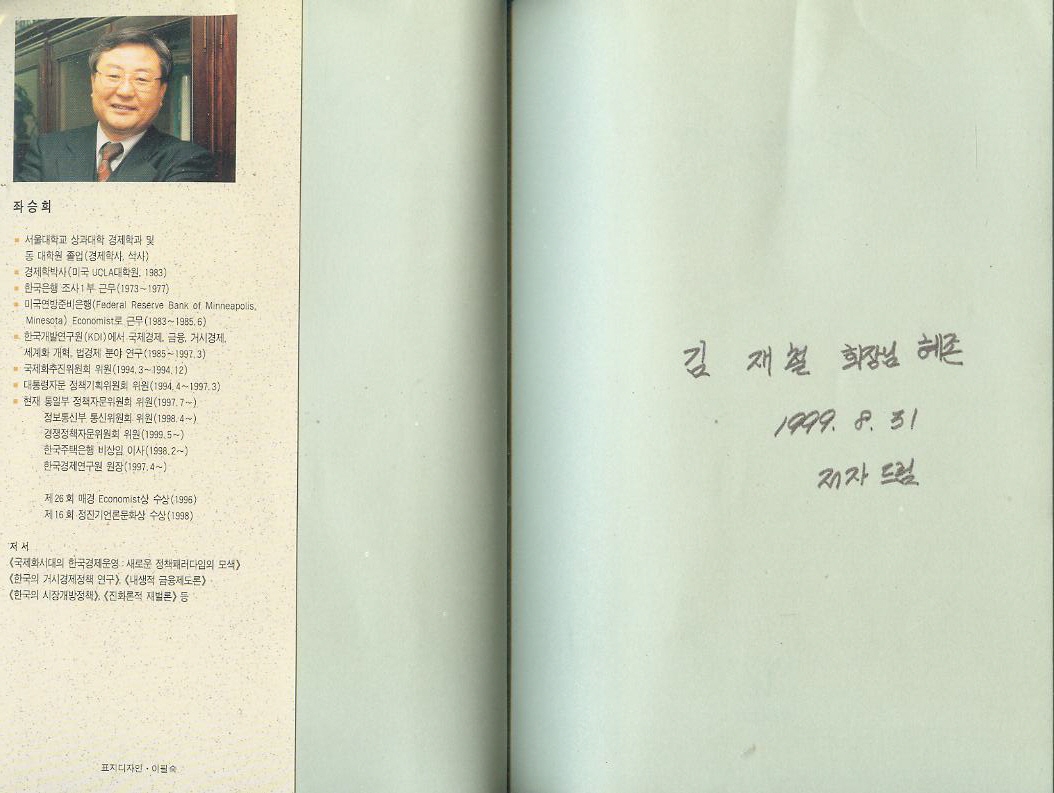 좌승희
서울대학교 상과대학 경제학과 및
동 대학원 졸업(경제학사, 석사)
경제학박사(미국 UCLA대학원, 1983)
한국은행 조사1부 근무(1973~1977)
미국연방준비은행(Federal Reserve Bank of Minneapolis,
Minesota) Economist로 근무(1983~1985.6)
한국개발연구원(KDI)에서 국제경제, 금융, 거시경제,
세계화 개혁, 법경제 분야 연구(1985~1997.3)
국제화추진위원회 위원(1994.3~1994.12)
대통령자문 정책기획위원회 위원(1994.4~1997.3)
현재 통일부 정책자문위원회 위원(1997.7~)
정보통신부 통신위원회 위원(1998.4~)
경쟁정책자문위원회 위원(1999.5~)
한국주택은행 비상임 이사(1998.2~)
한국경제연구원 원장(1997.4~)
제26회 매경 Economist상 수상(1996)
제16회 정진기언론문화상 수상(1998)
저서
《국제화시대의 한국경제운영 : 새로운 정책패러다임의 모색》
《한국의 거시경제정책 연구》, 《내생적 금융제도론》
《한국의 시장개방정책》, 《진화론적 재벌론》 등
표지디자인·이필숙
김 재철 회장님 혜존
1999. 8. 31
저자 드림